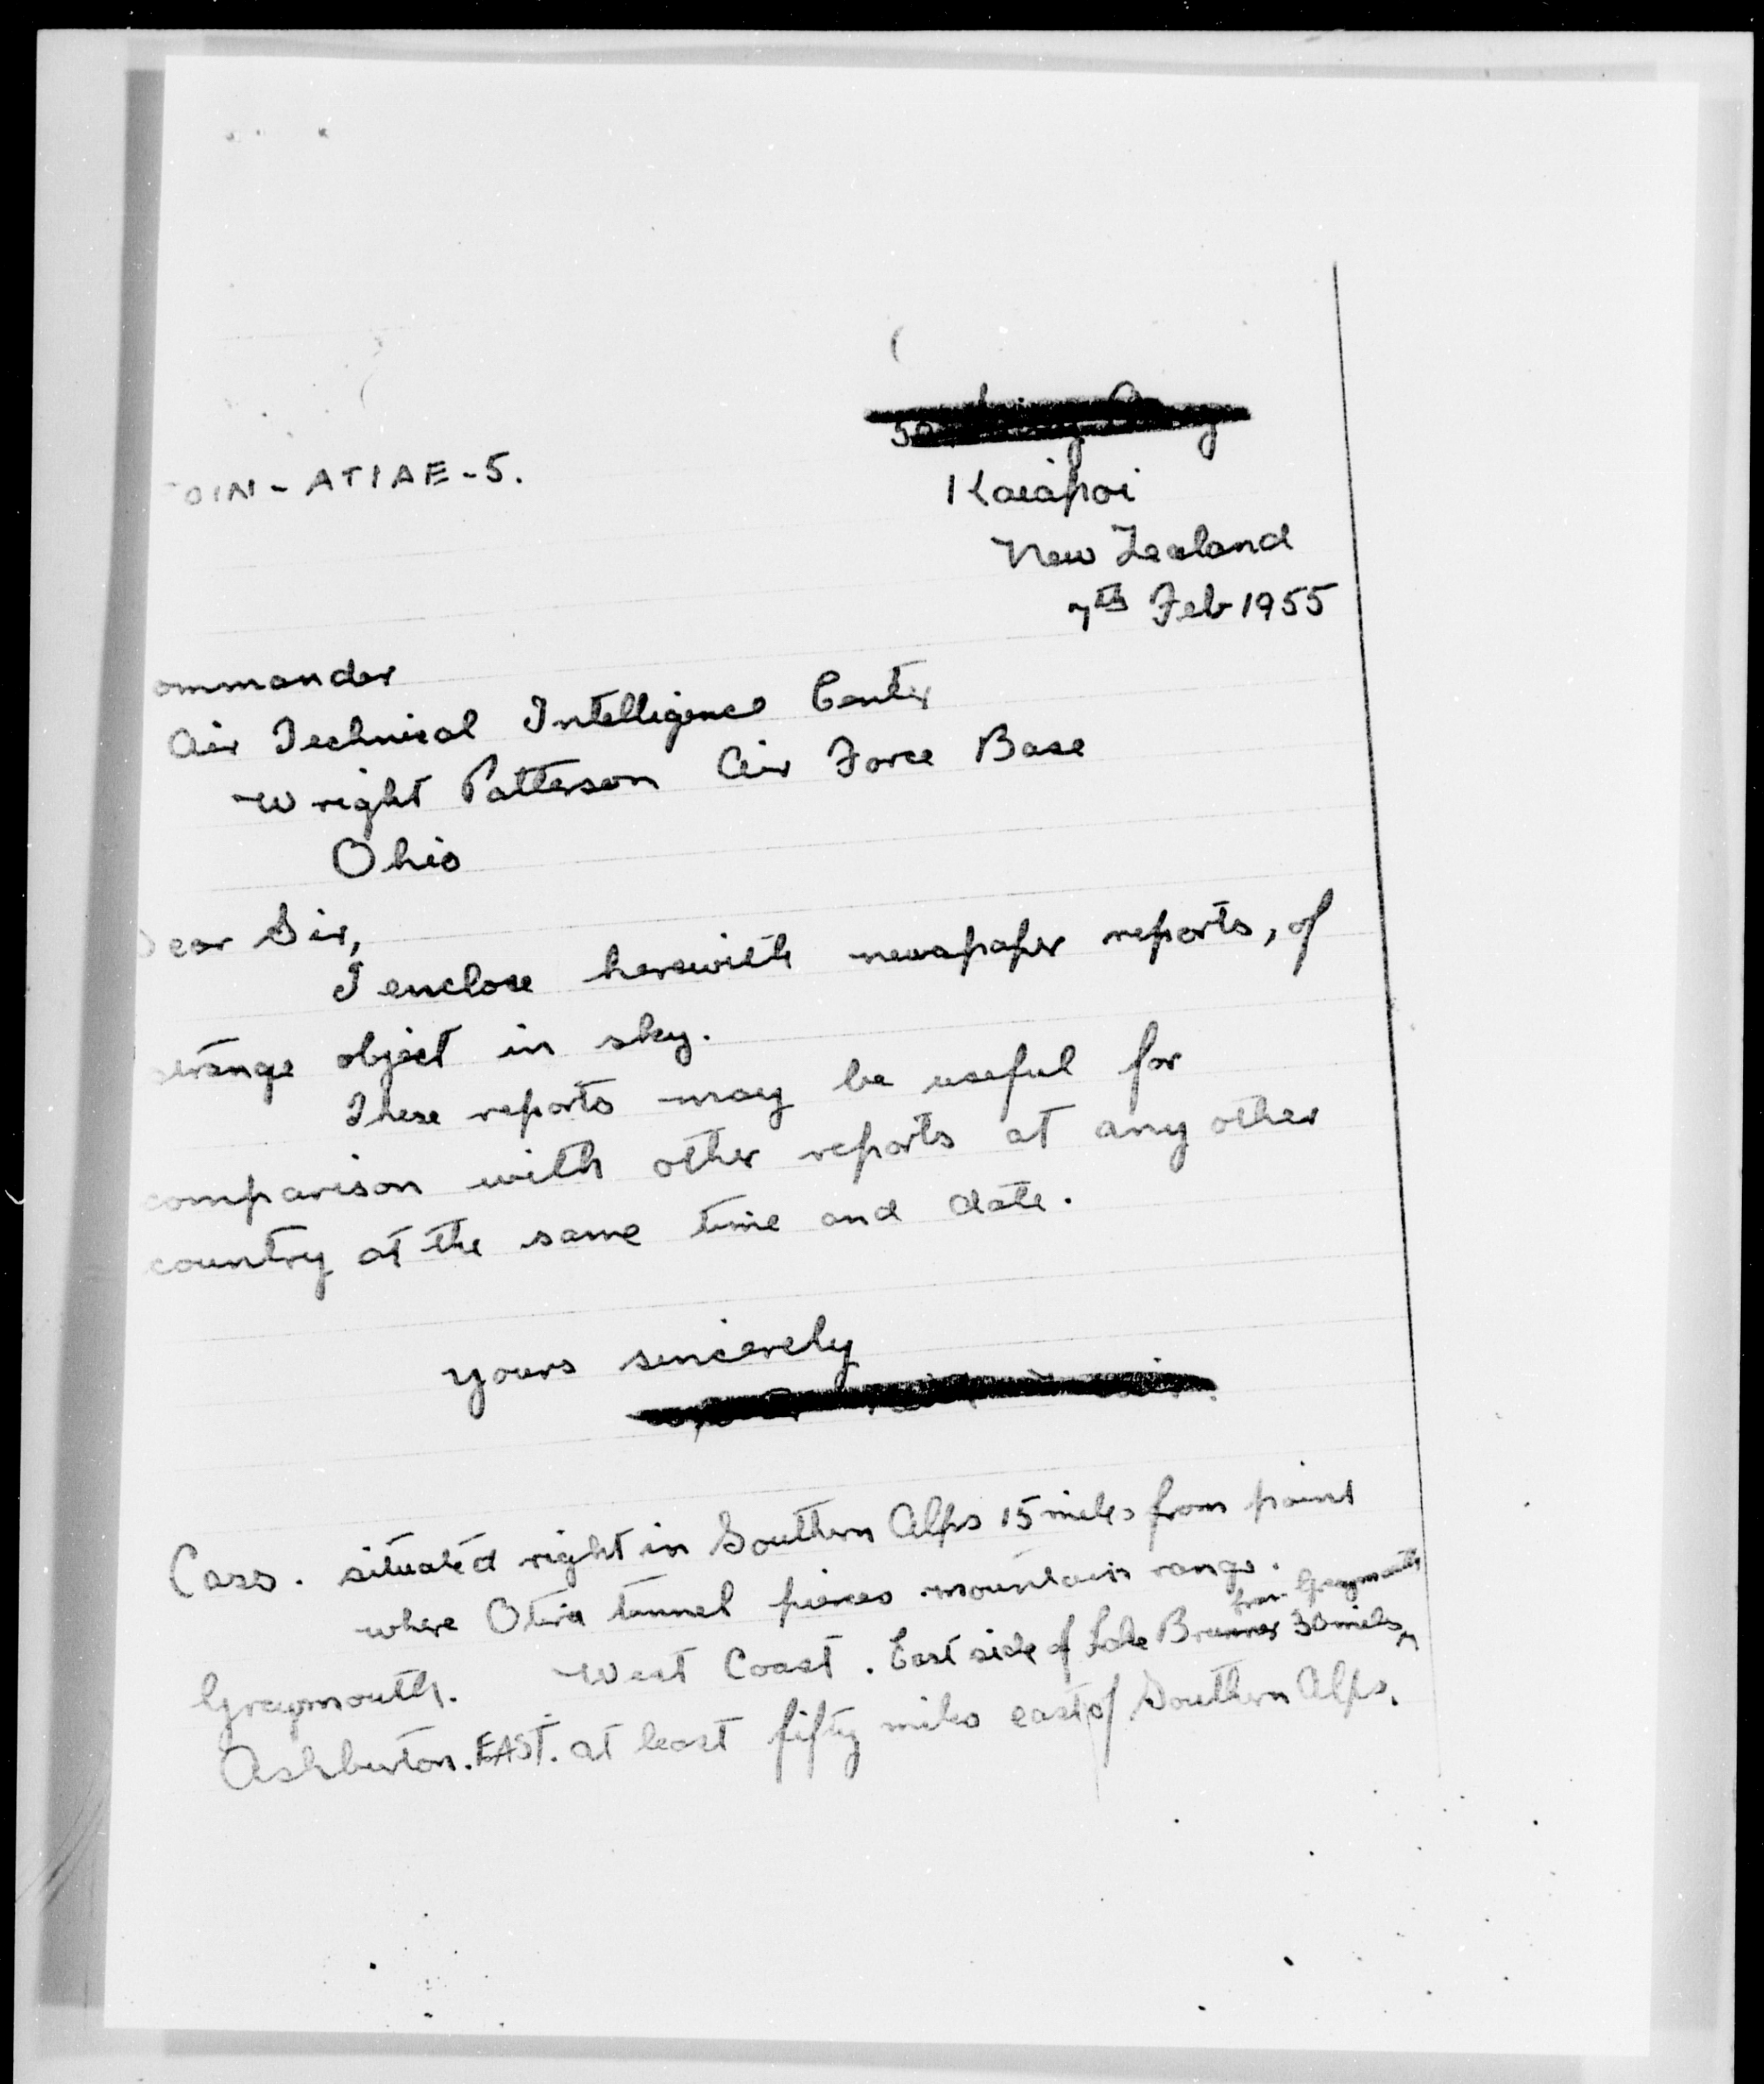 OIN - ATIAE - 5.
Kaiapoi
New Zealand
7th Feb 1955
ommander
Air Technical Intelligence Center
Wright Patterson Air Force Base
Ohio
ear Sir,
I enclose herewith newspaper reports, of
strange object in sky.
These reports may be useful for
comparison with other reports at any other
country at the same time and date.
Yours sincerely
Cass. situated right in Southern Alps 15 miles from point
where Otira tunnel pierces mountain range.
from Greymouth
Greymouth. West Coast. East side of Lake Brunner 30 miles
Ashburton. EAST. at least fifty miles east of Southern Alps.